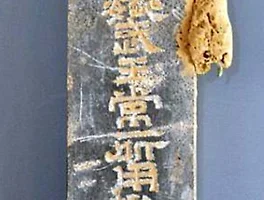 魏武王常所用